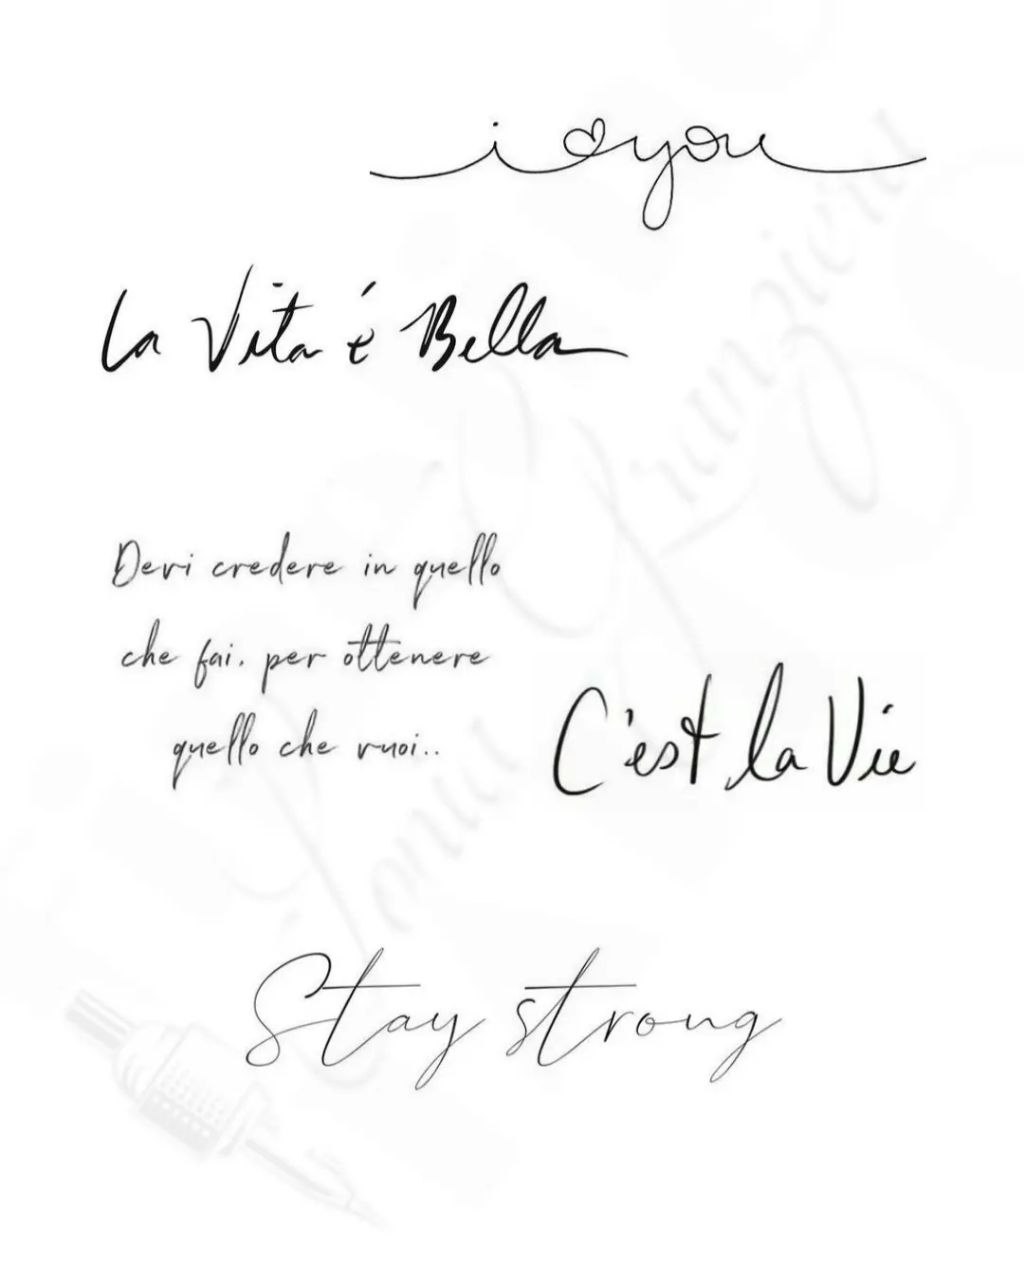 i ♡ you
La Vita é Bella
Devi credere in quello
che fai. per ottenere
quello che vuoi..
C'est la Vie
Stay strong
Sonia Grunzieru